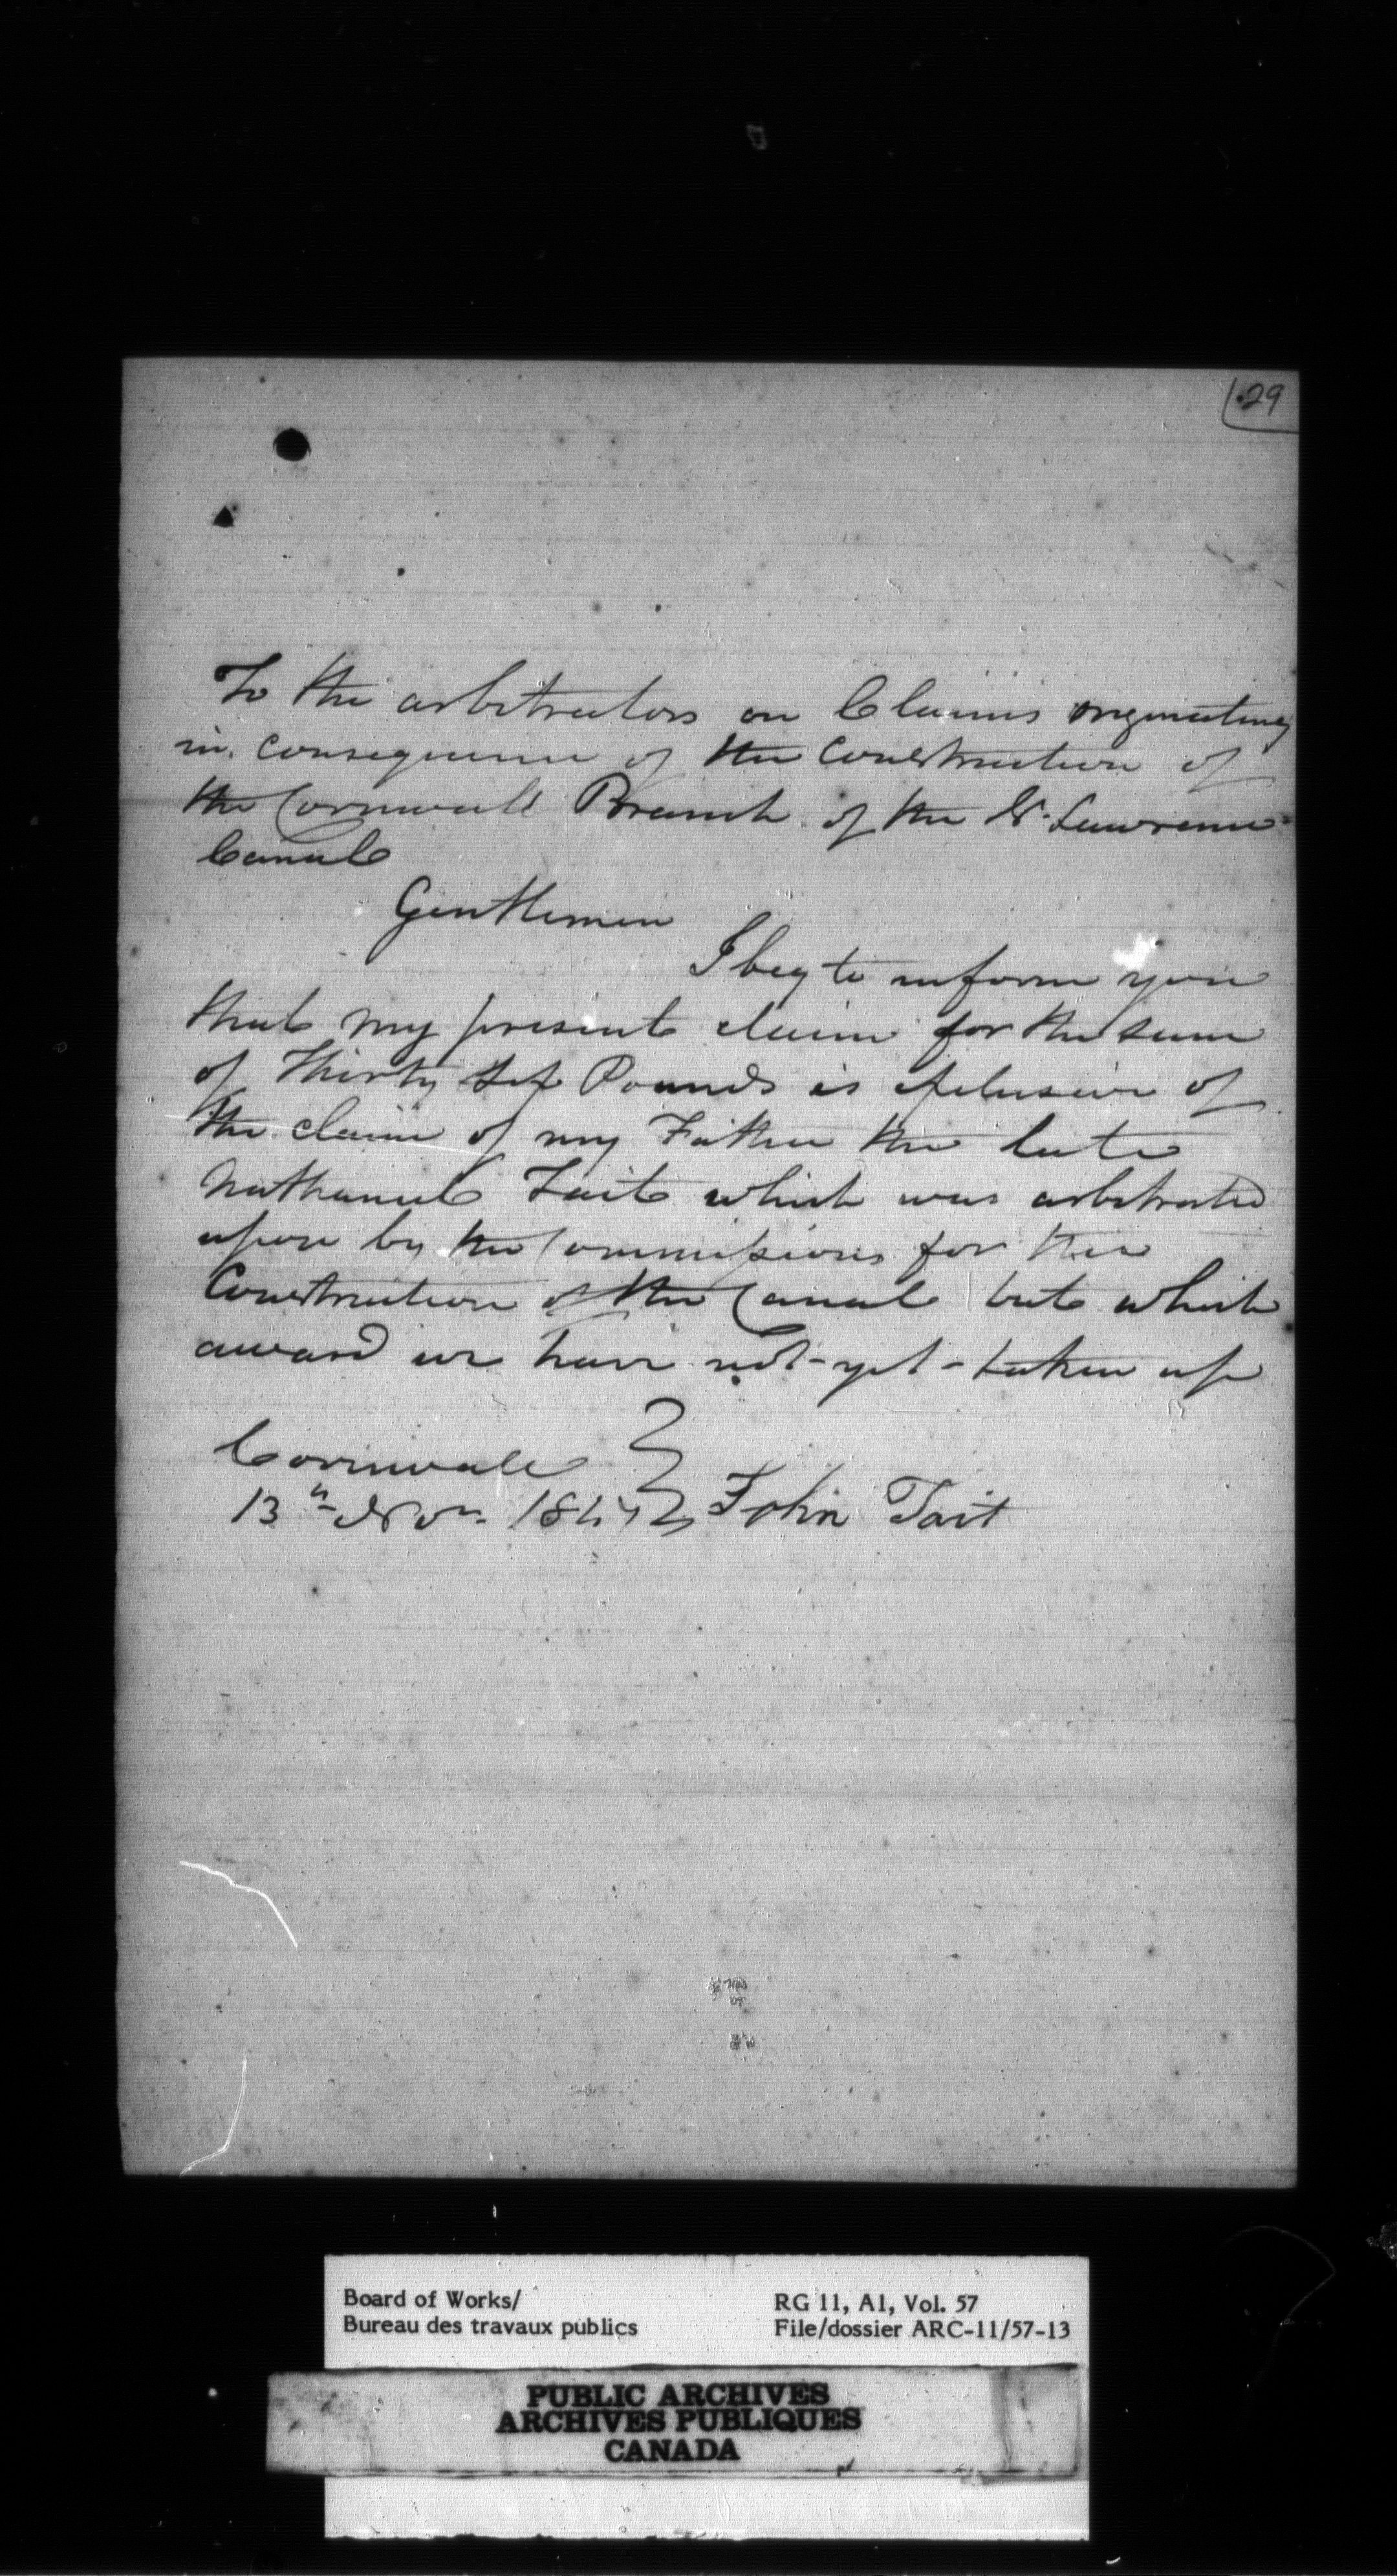 29
To the arbitrators on Claims originating
in consequence of the Construction of
the Cornwall Branch of the St. Lawrence
Canal
Gentlemen
I beg to inform you
that my present claim for the sum
of Thirty Six Pounds is exclusive of
the claim of my Father the late
Nathaniel Tait which was arbitrated
upon by the Commissioners for the
Construction of the Canal but which
award we have not yet taken up
Cornwall
13th Novr. John Tait
Board of Works/
Bureau des travaux publics
RG 11, A1, Vol. 57
File/dossier ARC-11/57-13
PUBLIC ARCHIVES
ARCHIVES PUBLIQUES
CANADA